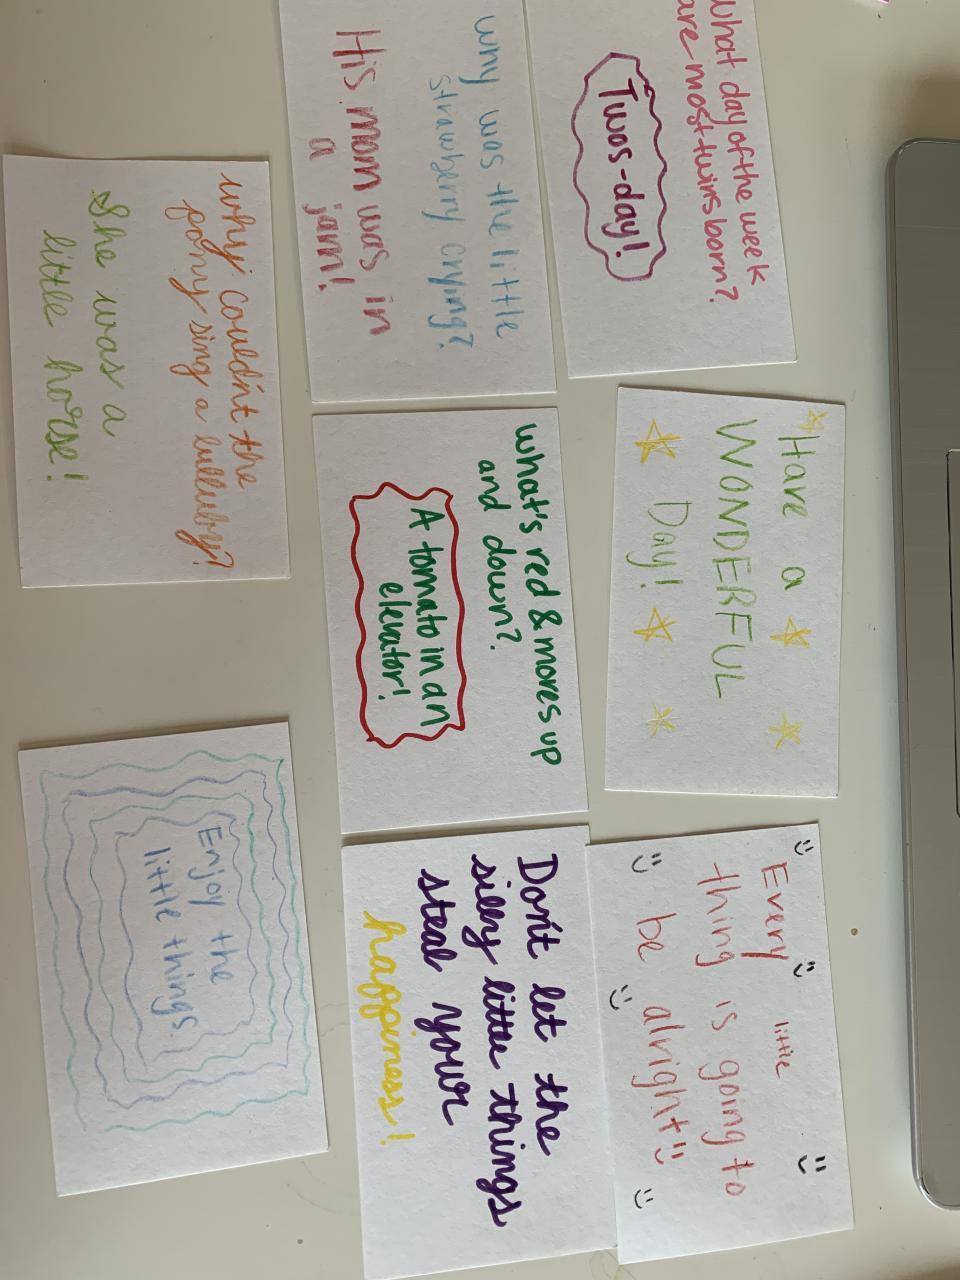 what day of the week
are most twins born?
Twos-day!
why was the little
strawberry crying?
His mom was in
a jam!
why couldn't the
pony sing a lulluby?
She was a
little horse!
Have a
WONDERFUL
Day!
what's red & moves up
and down?
A tomato in an
elevator!
Every little
thing is going to
be alright
Don't let the
silly little things
steal your
happiness!
Enjoy the
little things.